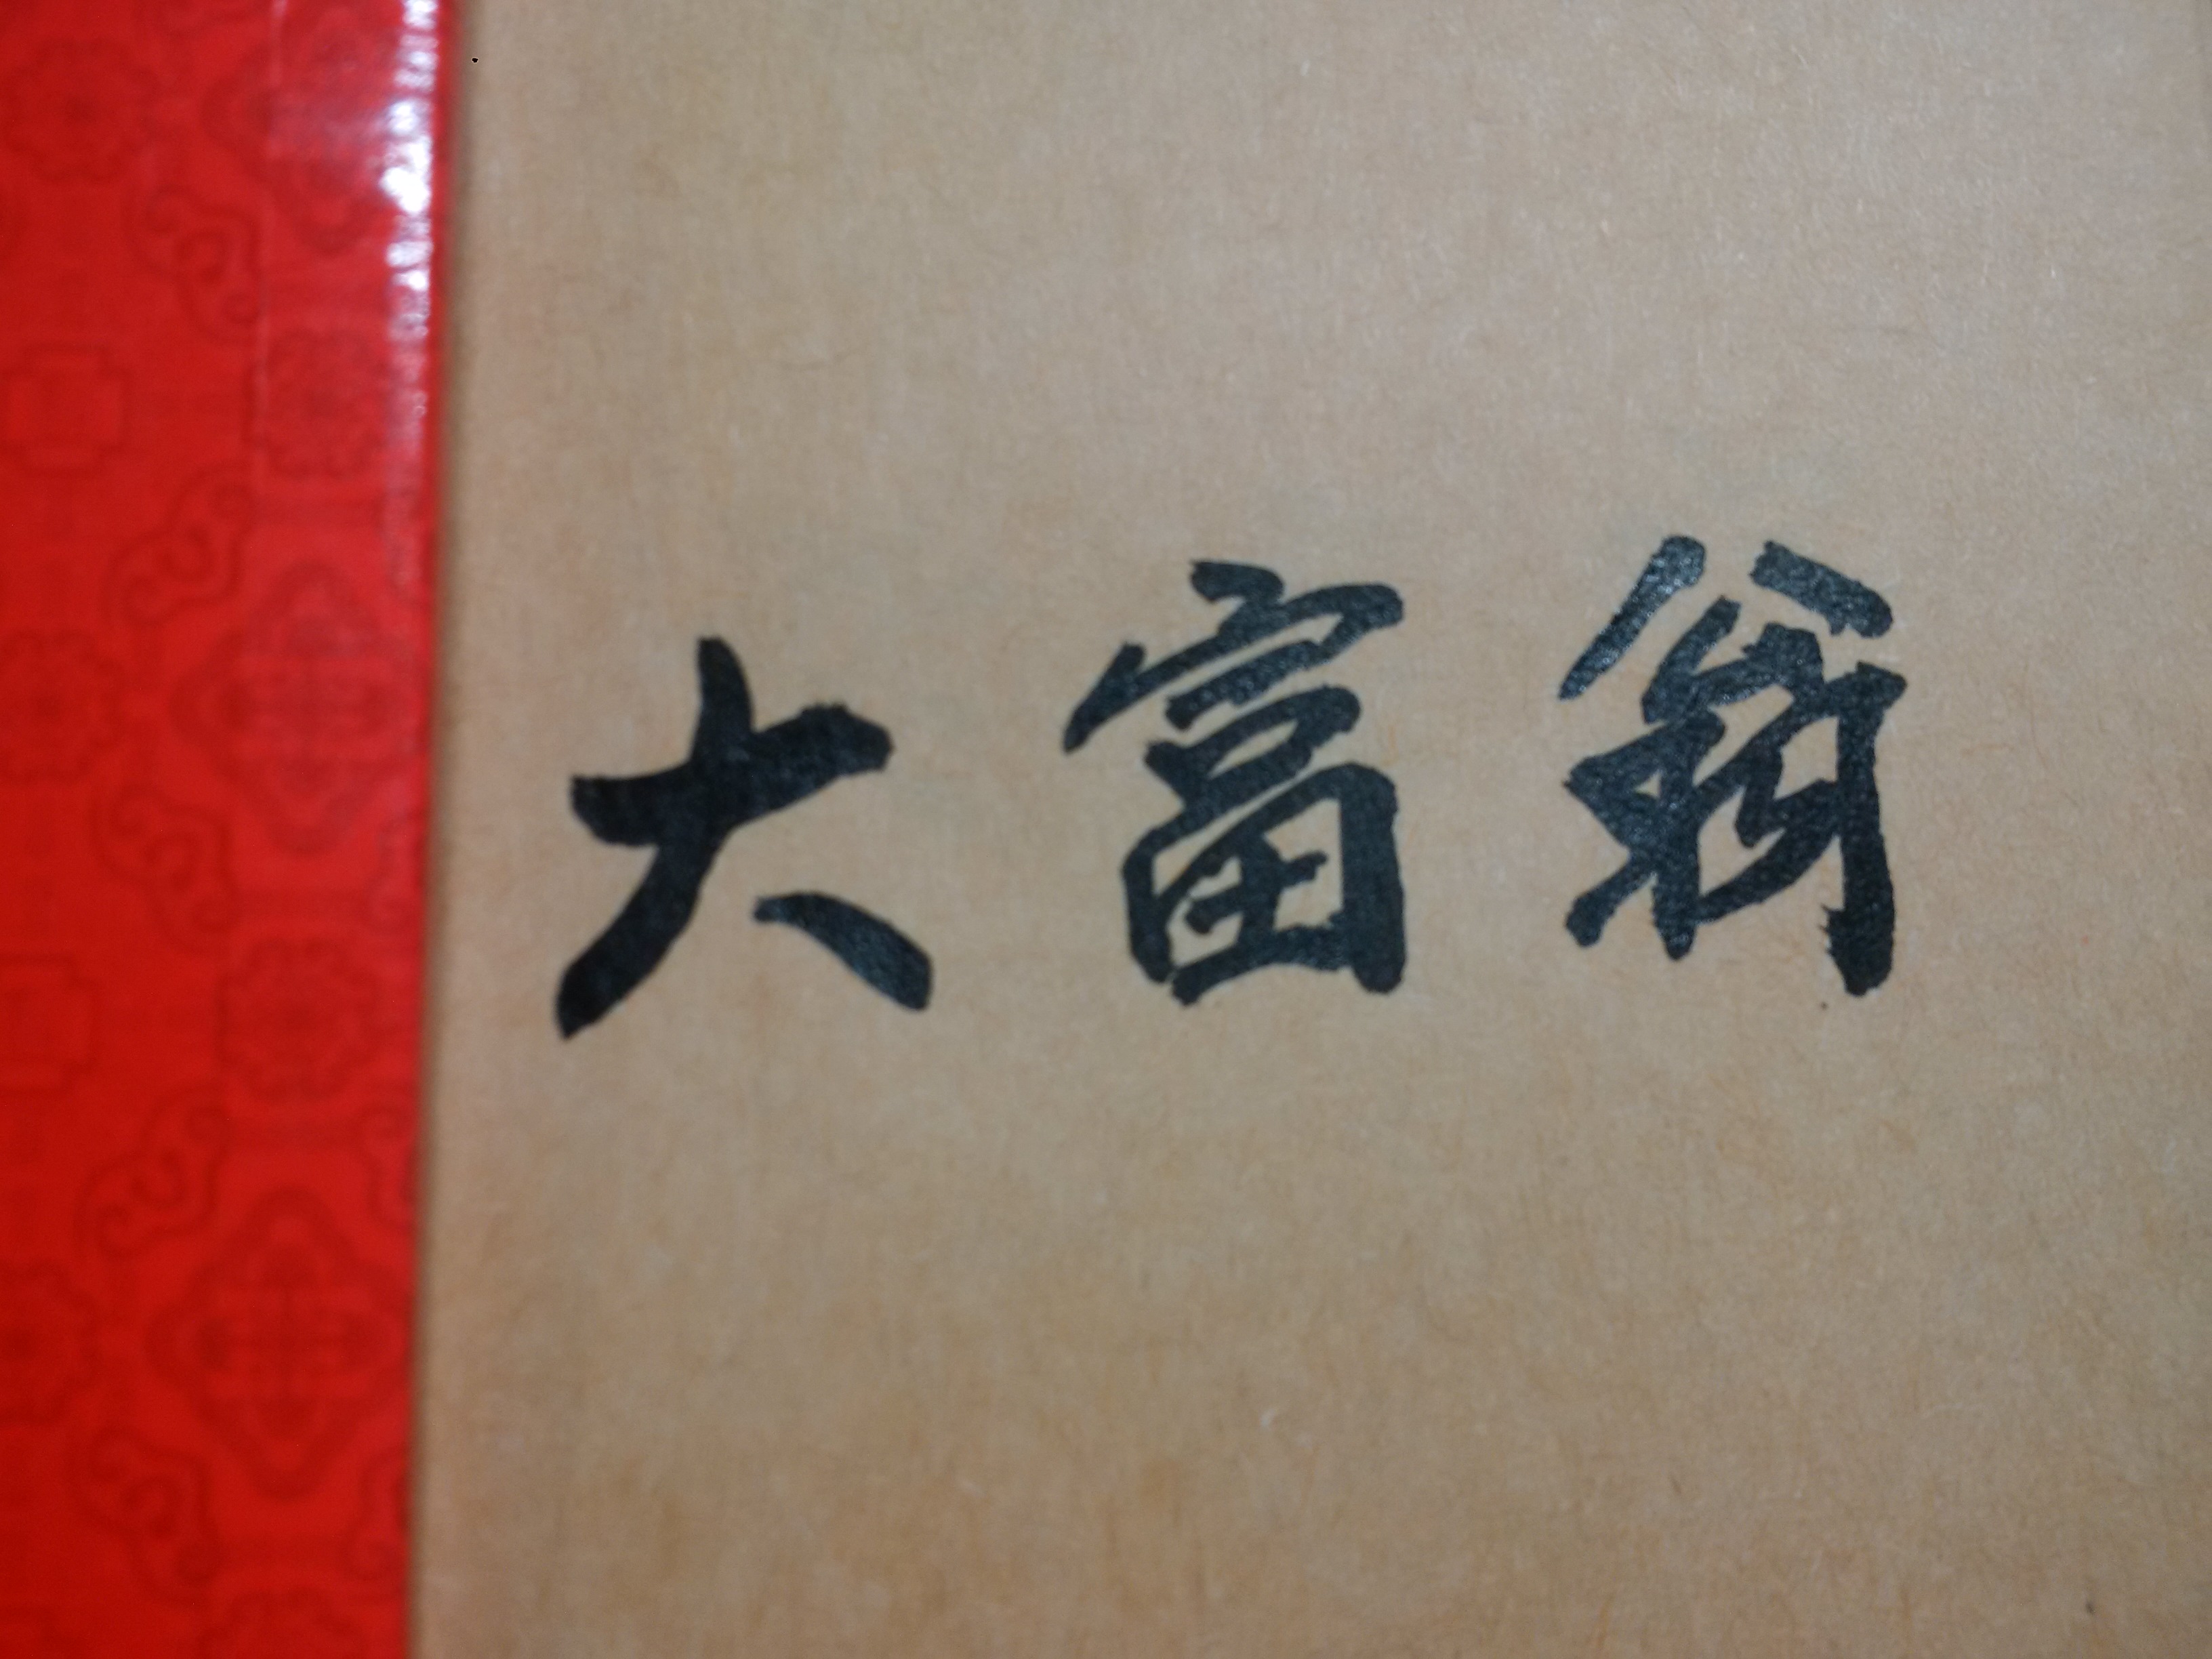 大富翁